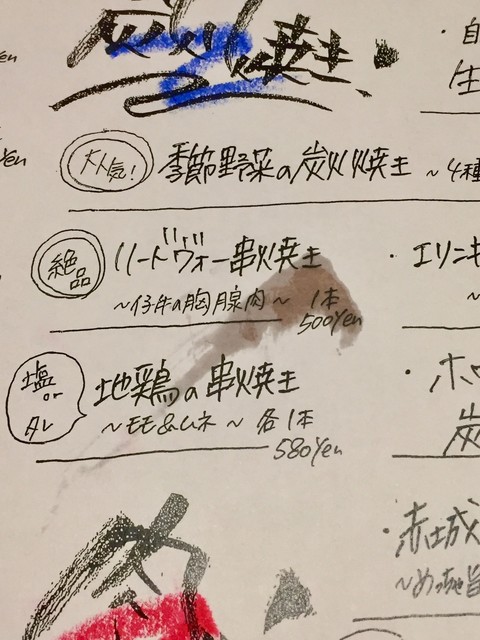 炭火焼き
大人気!
季節野菜の炭火焼き ~4種
絶品
リードヴォー串焼き
~仔牛の胸腺肉~ 1本
500Yen
塩
or
タレ
地鶏の串焼き
~モモ&ムネ~ 各1本
580Yen
・自
生
・エリンギ
~
・ホ
炭
・赤城
~めっちゃ旨
yen
Yen